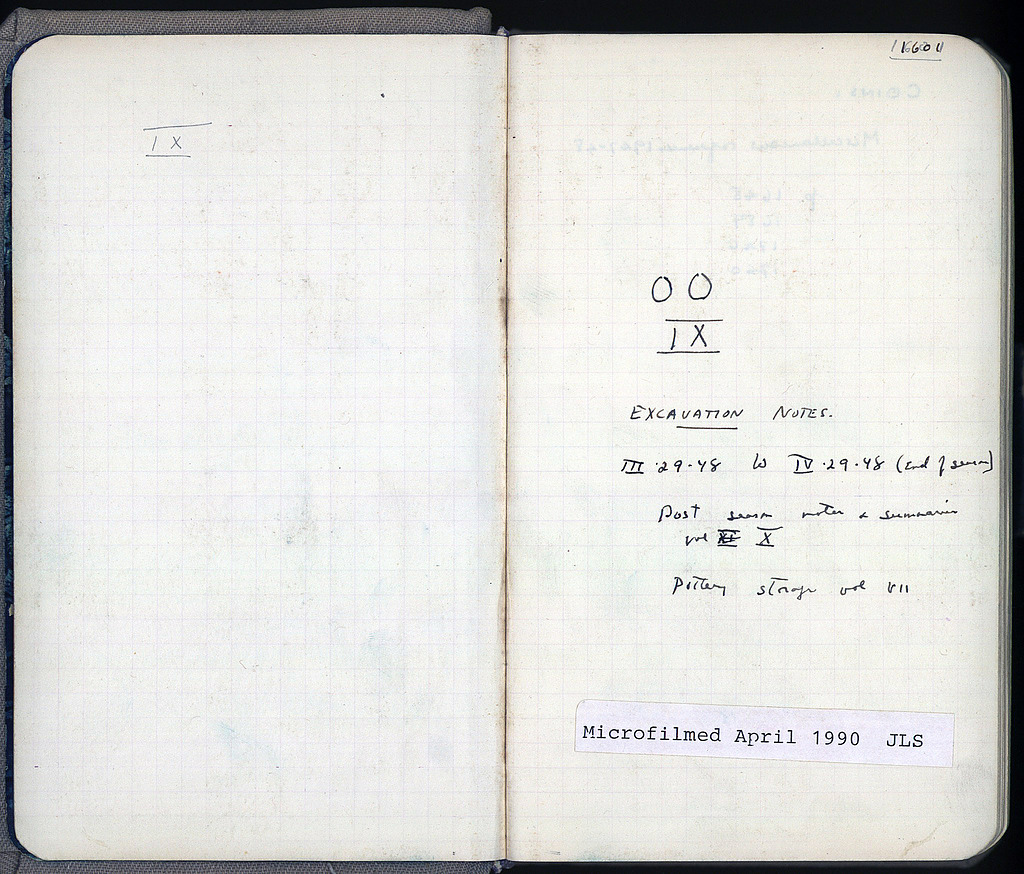 IX
OO
IX
EXCAVATION NOTES.
III·29·48 to IV·29·48 (End of season)
Post season notes & summaries
vol X
Pottery storage vol VII
Microfilmed April 1990 JLS